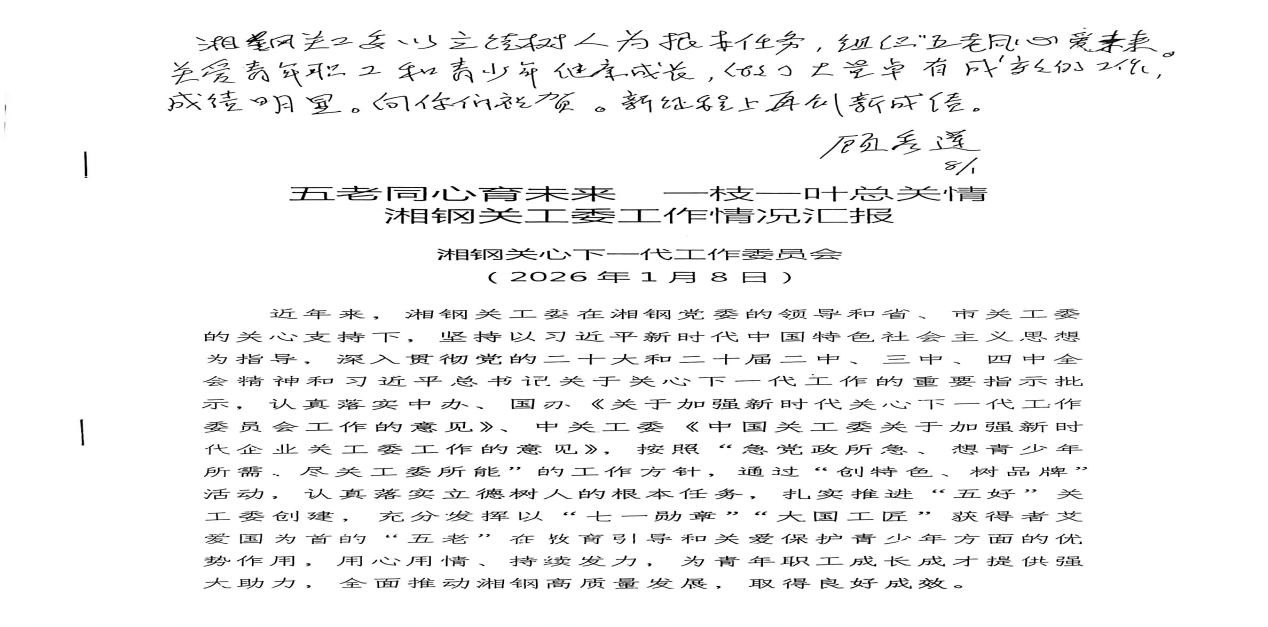 湘钢关工委以立德树人为根本任务，组织"五老同心爱未来。
关爱青年职工和青少年健康成长，做了大量卓有成效的工作，
成绩明显。向你们祝贺。新征程上再创新成绩。
顾秀莲
8/1
五老同心育未来 一枝一叶总关情
湘钢关工委工作情况汇报
湘钢关心下一代工作委员会
（2026年1月8日）
近年来，湘钢关工委在湘钢党委的领导和省、市关工委
的关心支持下，坚持以习近平新时代中国特色社会主义思想
为指导，深入贯彻党的二十大和二十届二中、三中、四中全
会精神和习近平总书记关于关心下一代工作的重要指示批
示，认真落实中办、国办《关于加强新时代关心下一代工作
委员会工作的意见》、中关工委《中国关工委关于加强新时
代企业关工委工作的意见》，按照“急党政所急、想青少年
所需、尽关工委所能”的工作方针，通过“创特色、树品牌”
活动，认真落实立德树人的根本任务，扎实推进“五好”关
工委创建，充分发挥以“七一勋章”“大国工匠”获得者艾
爱国为首的“五老”在教育引导和关爱保护青少年方面的优
势作用，用心用情、持续发力，为青年职工成长成才提供强
大助力，全面推动湘钢高质量发展，取得良好成效。